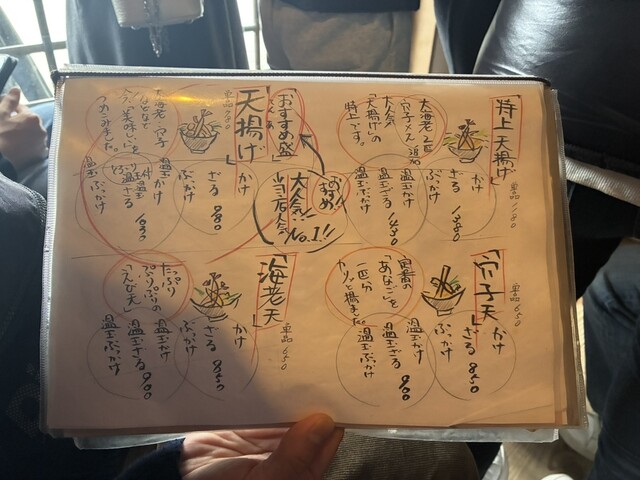 「特上天揚げ」
単品1180
かけ
ざる 1380
ぶっかけ
温玉かけ
温玉ざる 1430
温玉ぶっかけ
大海老2匹
穴子メス追加
大人気
「天揚げ」の
特上です。
のおすすめ!!
大人気!!
当店人気
No.1!!
「おすすめ盛」
天揚げ」
単品780
かけ
ざる 980
ぶっかけ
温玉かけ
温玉ざる 1030
温玉ぶっかけ
大海老 穴子
などなど
今「美味しい」を
つめこみました。
「穴子天」
単品650
かけ
ざる 850
ぶっかけ
温玉かけ
温玉ざる 900
温玉ぶっかけ
定番の
「あなご」を
一匹分
カリッと揚げました。
「海老天」
単品650
かけ
ざる 850
ぶっかけ
温玉かけ
温玉ざる 900
温玉ぶっかけ
たっぷり
ぷりぷりの
「えび天」